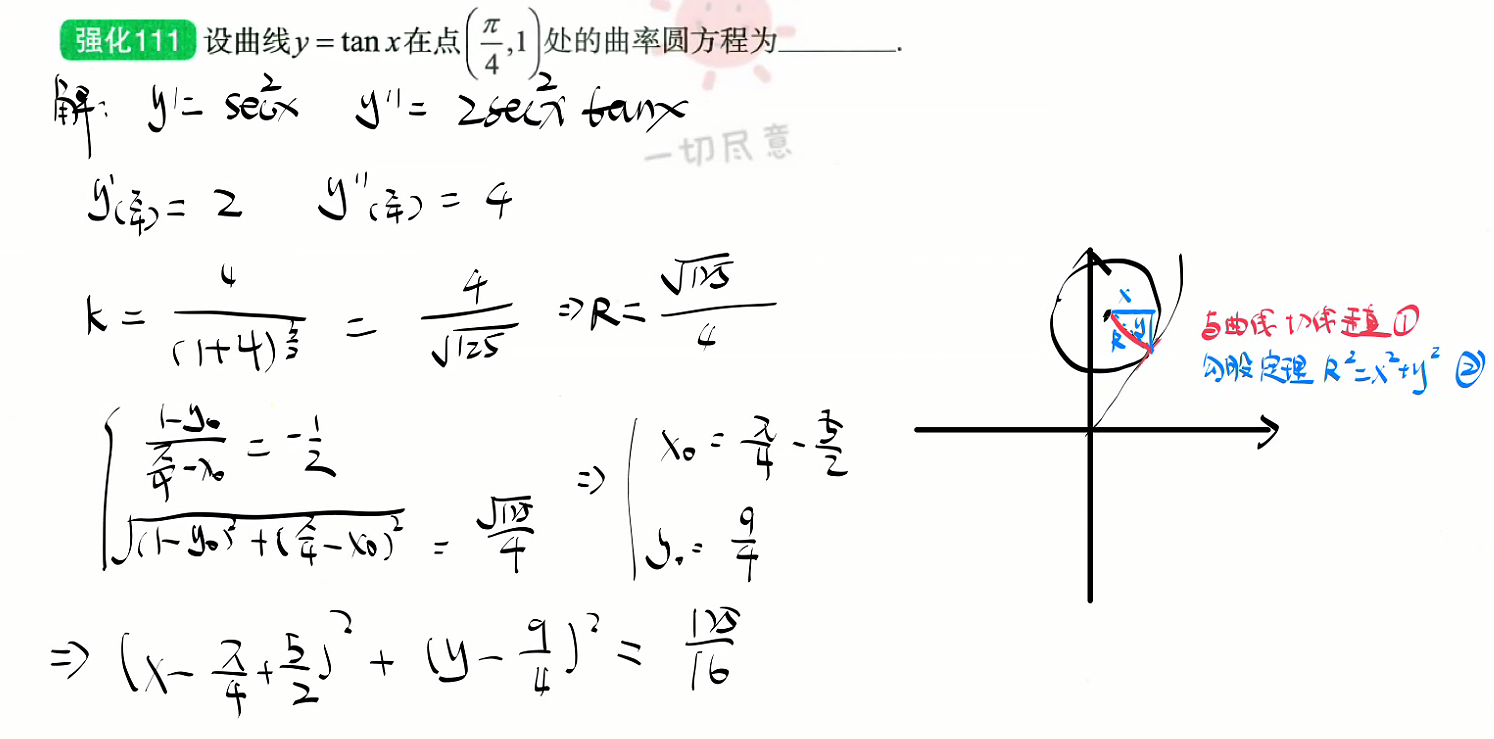 强化111 设曲线y = tan x在点(π/4,1)处的曲率圆方程为________.
解: y' = sec²x y'' = 2sec²x tanx
一切尽意
y'(π/4) = 2 y''(π/4) = 4
k = 4/(1+4)^(3/2) = 4/√125 ⇒ R = √125/4
{ (1-y₀)/(π/4-x₀) = -1/2
√((1-y₀)²+(π/4-x₀)²) = √125/4
⇒ { x₀ = π/4 - 5/2
y₀ = 9/4
⇒ (x - π/4 + 5/2)² + (y - 9/4)² = 125/16
x
y
R
与曲率切线垂直 ①
勾股定理 R²=x²+y² ②